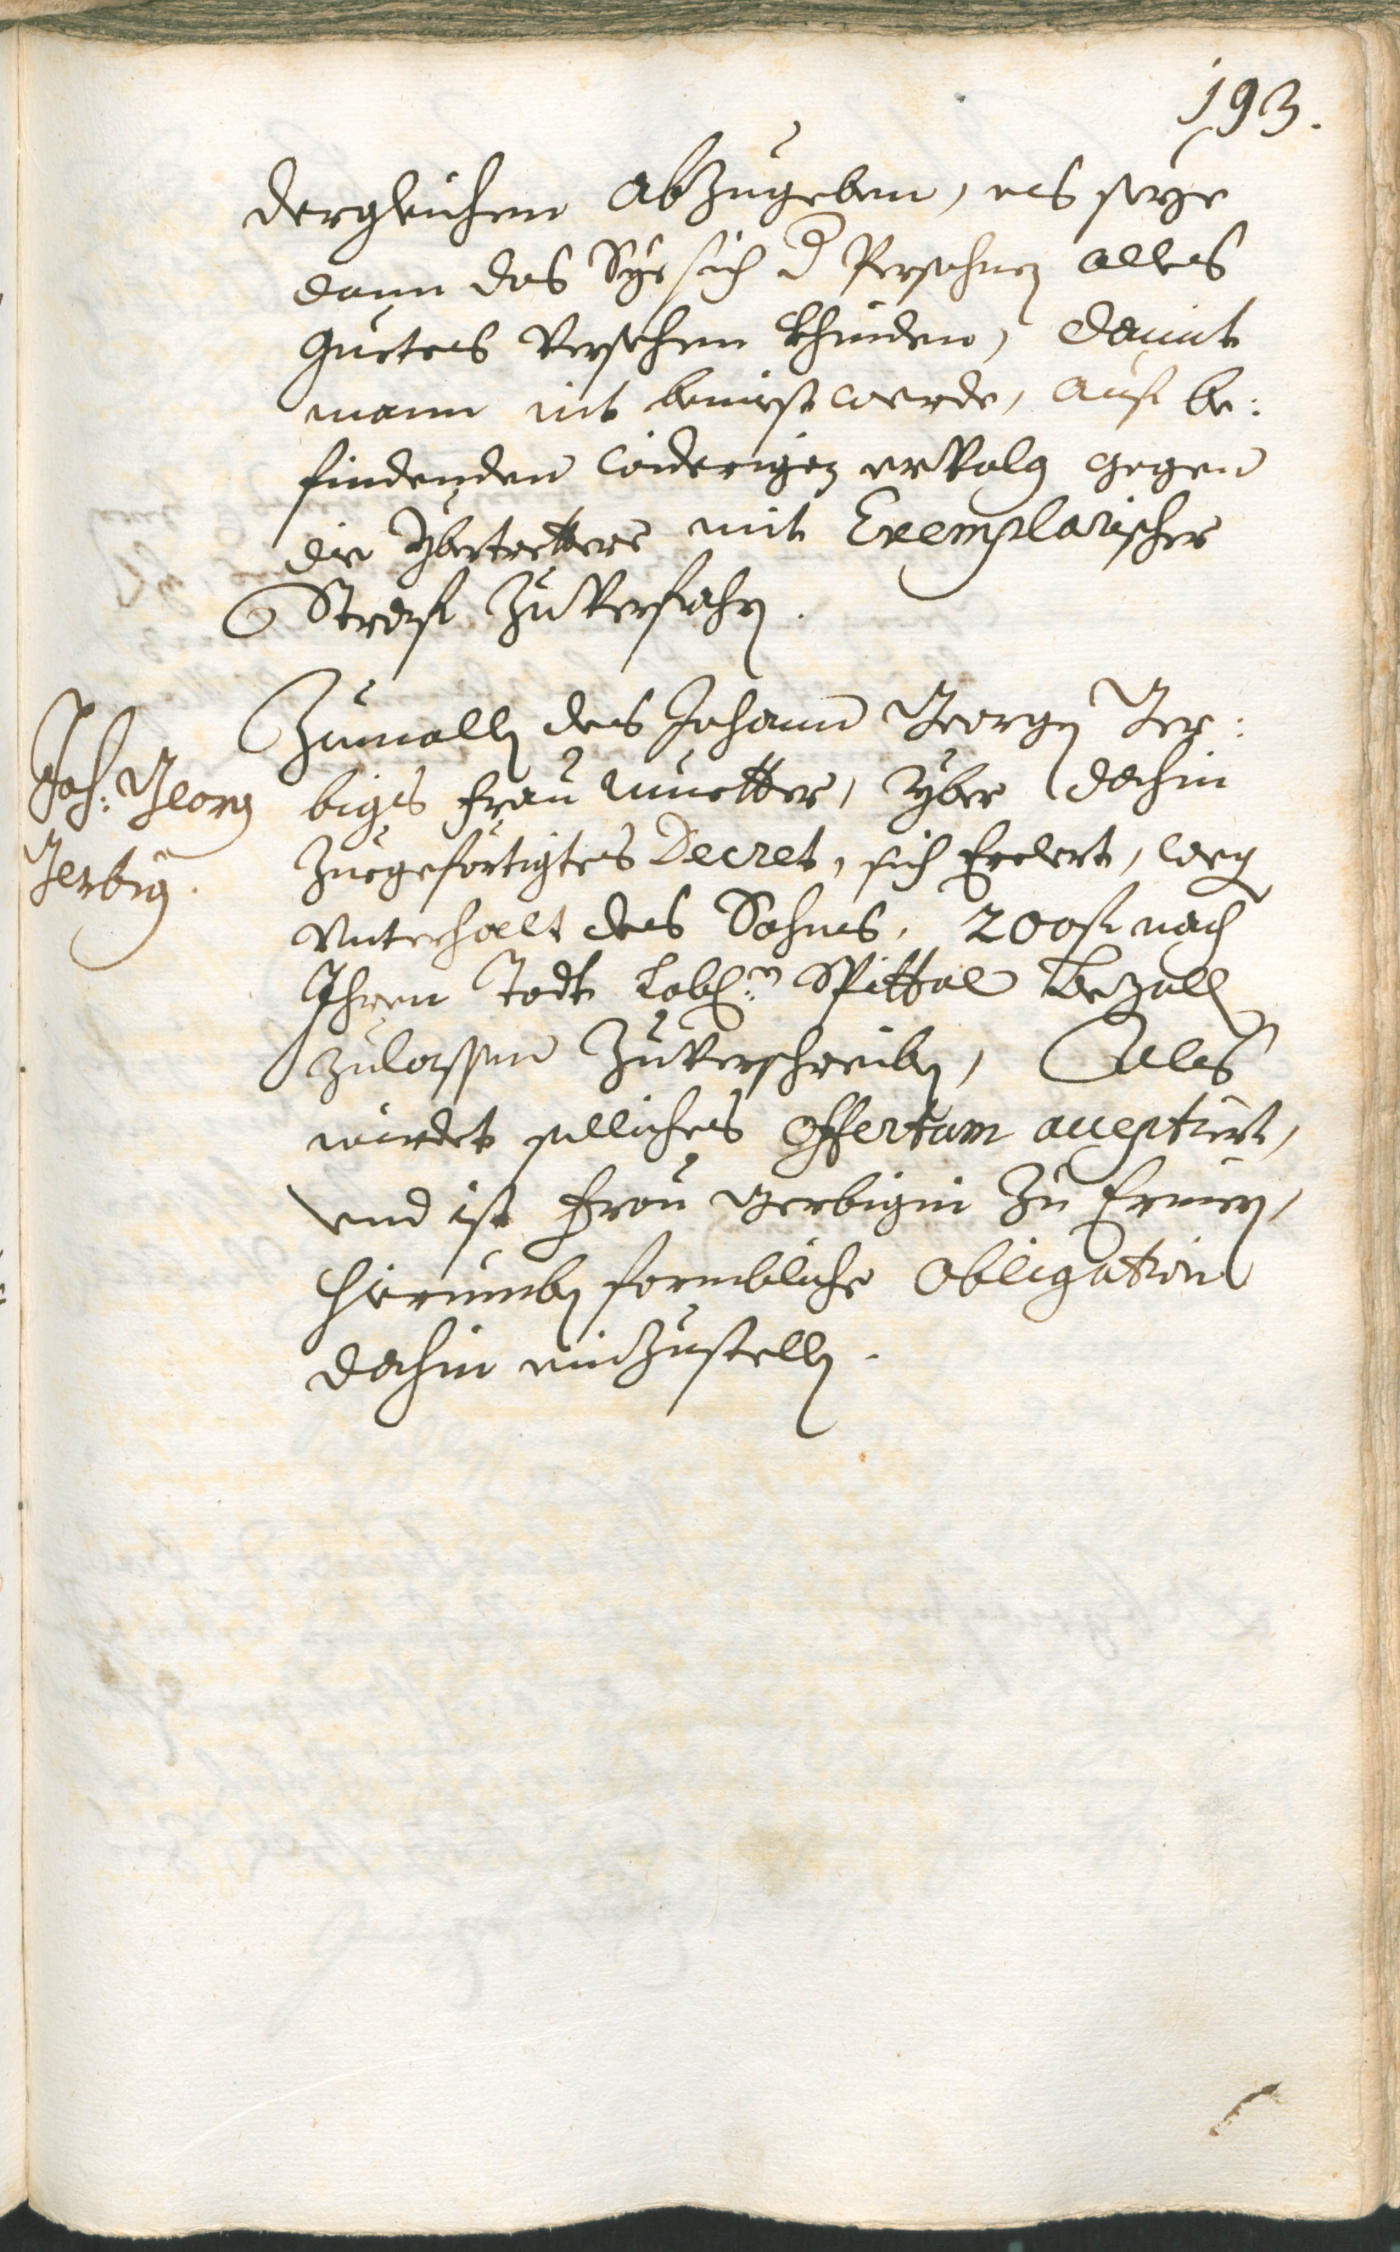 193.
dergleichen abzugeben, es seye
dann das Sye sich d Persohnen alles
Guetes Versehen khinden, damit
mann nit bemiest werde, auf be:
findenden widerigen ervolg gegen
die Ybertrettere mit Exemplarischer
Straf zu Verfahren.
Joh: Georg
Gerbig.
Zumallen des Johann Georgen Ger:
bigs Frau Muetter, Yber dahin
zuegeförtigtes Decret, sich Erclert, weg
Unterhalt des Sohns, 200 fl nach
Ihren Todt Lobl:n Spittal bezallen
zulassen zu Verschreiben, Alles
würdet solliches Offertum acceptiert,
und ist Frau Gerbigin zu
hierumben formbliche Obligation
dahin einzustellen.